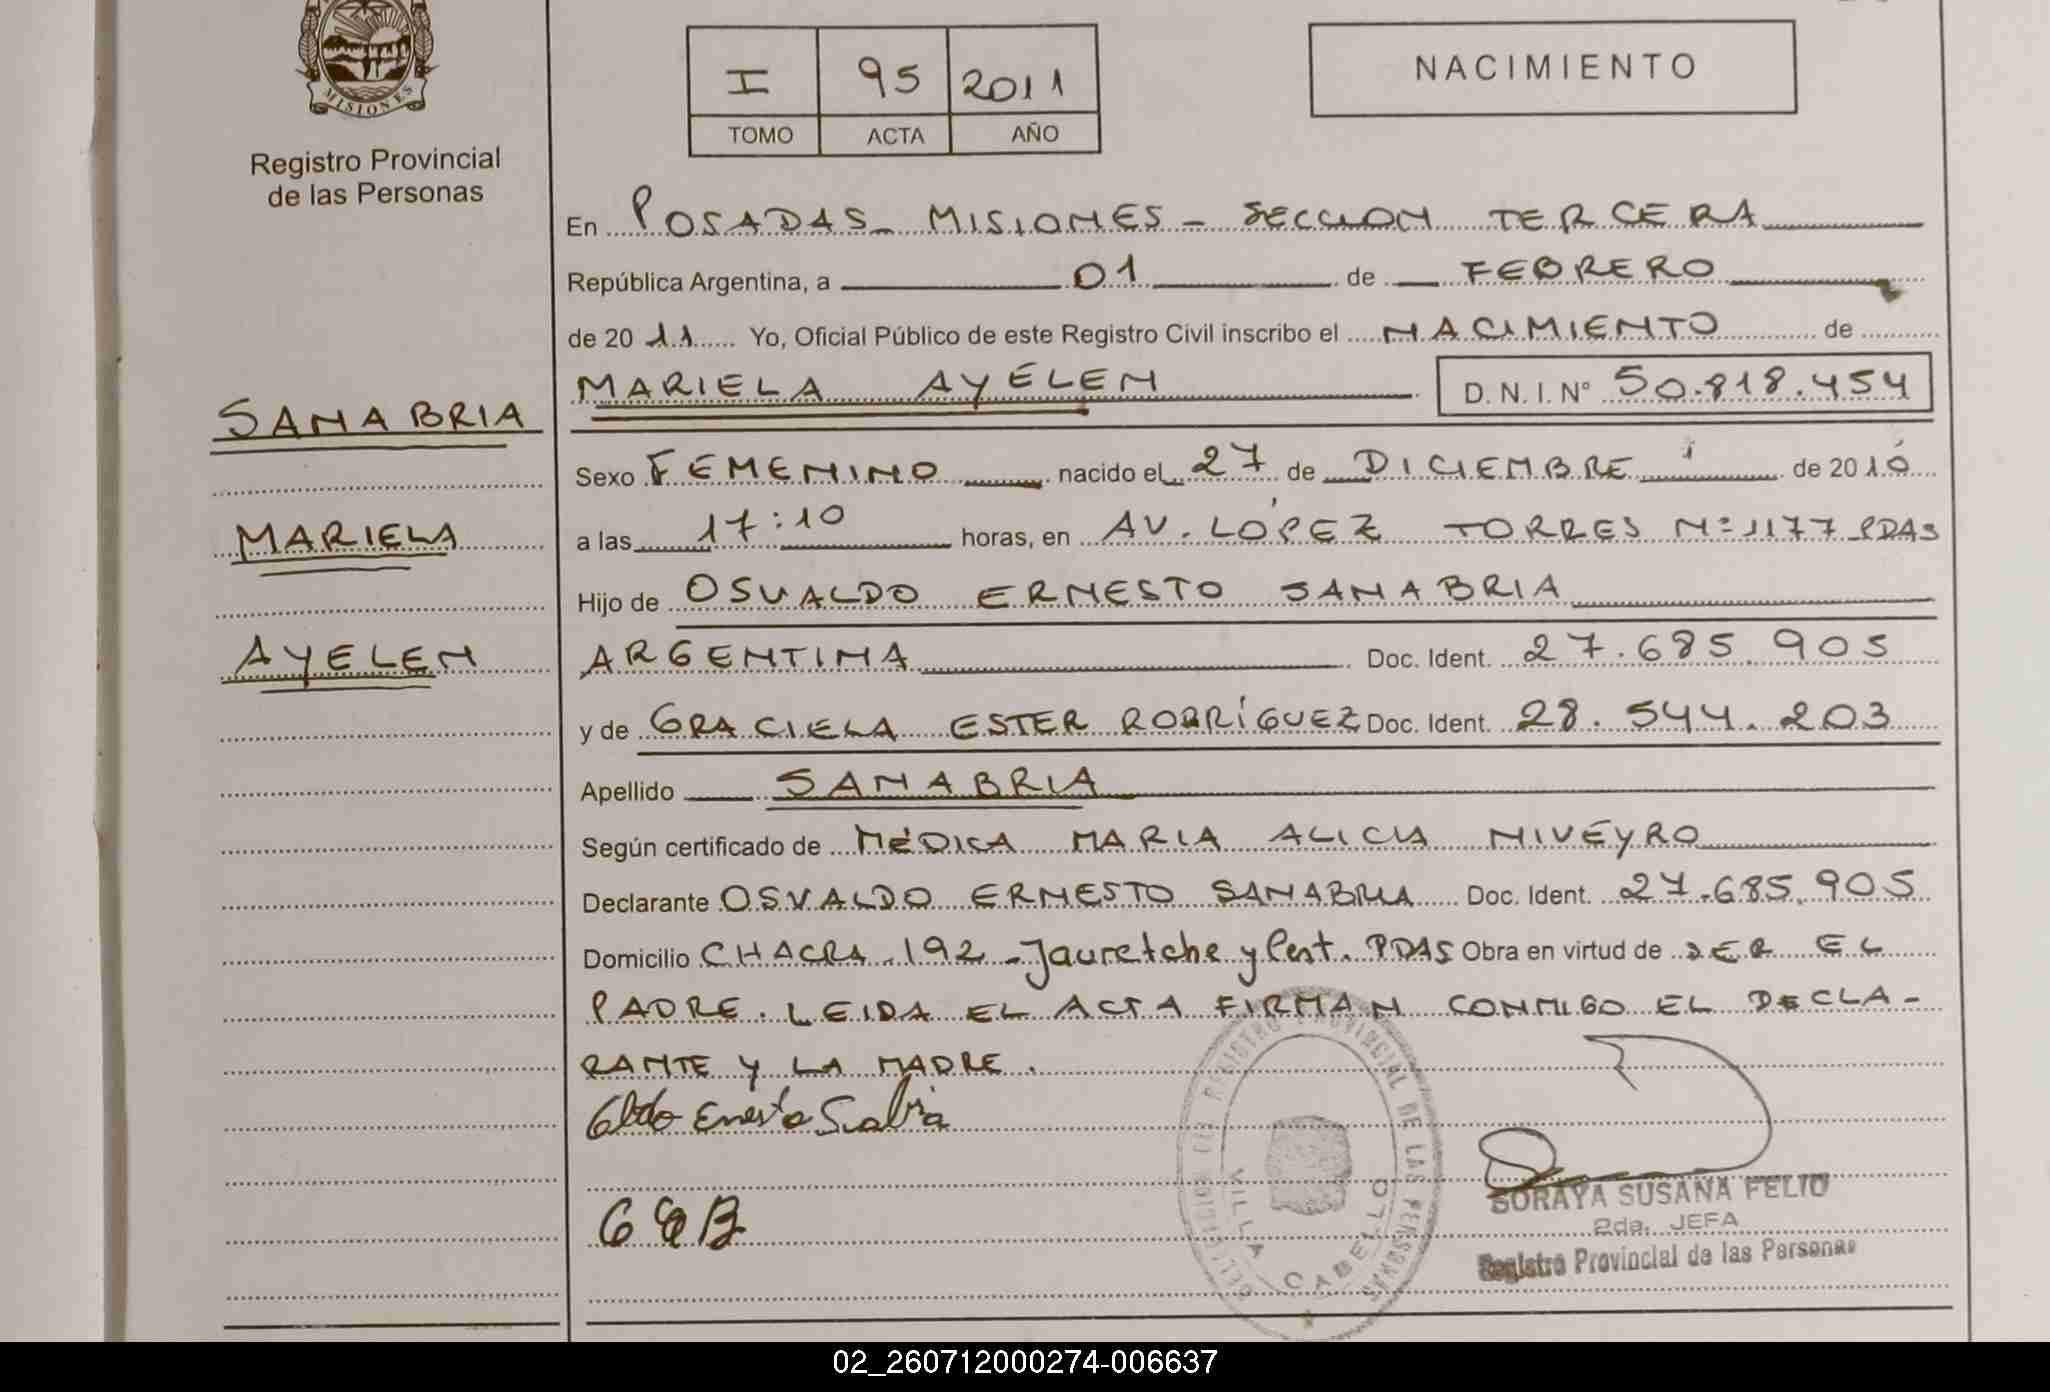 MISIONES
Registro Provincial
de las Personas
I 95 2011
TOMO ACTA AÑO
NACIMIENTO
En POSADAS - MISIONES - SECCION TERCERA
República Argentina, a 01 de FEBRERO
de 2011 Yo, Oficial Público de este Registro Civil inscribo el NACIMIENTO de
MARIELA AYELEN D. N. I. Nº 50.818.454
SANABRIA
MARIELA
AYELEN
Sexo FEMENINO nacido el 27 de DICIEMBRE de 2010
a las 17:10 horas, en AV. LÓPEZ TORRES Nº 1177 PDAS
Hijo de OSVALDO ERNESTO SANABRIA
ARGENTINA Doc. Ident. 27.685.905
y de GRACIELA ESTER RODRÍGUEZ Doc. Ident. 28.544.203
Apellido SANABRIA
Según certificado de MÉDICA MARIA ALICIA NIVEYRO
Declarante OSVALDO ERNESTO SANABRIA Doc. Ident. 27.685.905
Domicilio CHACRA 192 - Jauretche y PDAS Obra en virtud de SER EL
PADRE. LEIDA EL ACTA FIRMAN CONMIGO EL DECLA-
RANTE Y LA MADRE.
DELEGACION DEL REGISTRO PROVINCIAL DE LAS PERSONAS
VILLA CABELLO
SORAYA SUSANA FELIO
2da. JEFA
Registro Provincial de las Personas
02_260712000274-006637